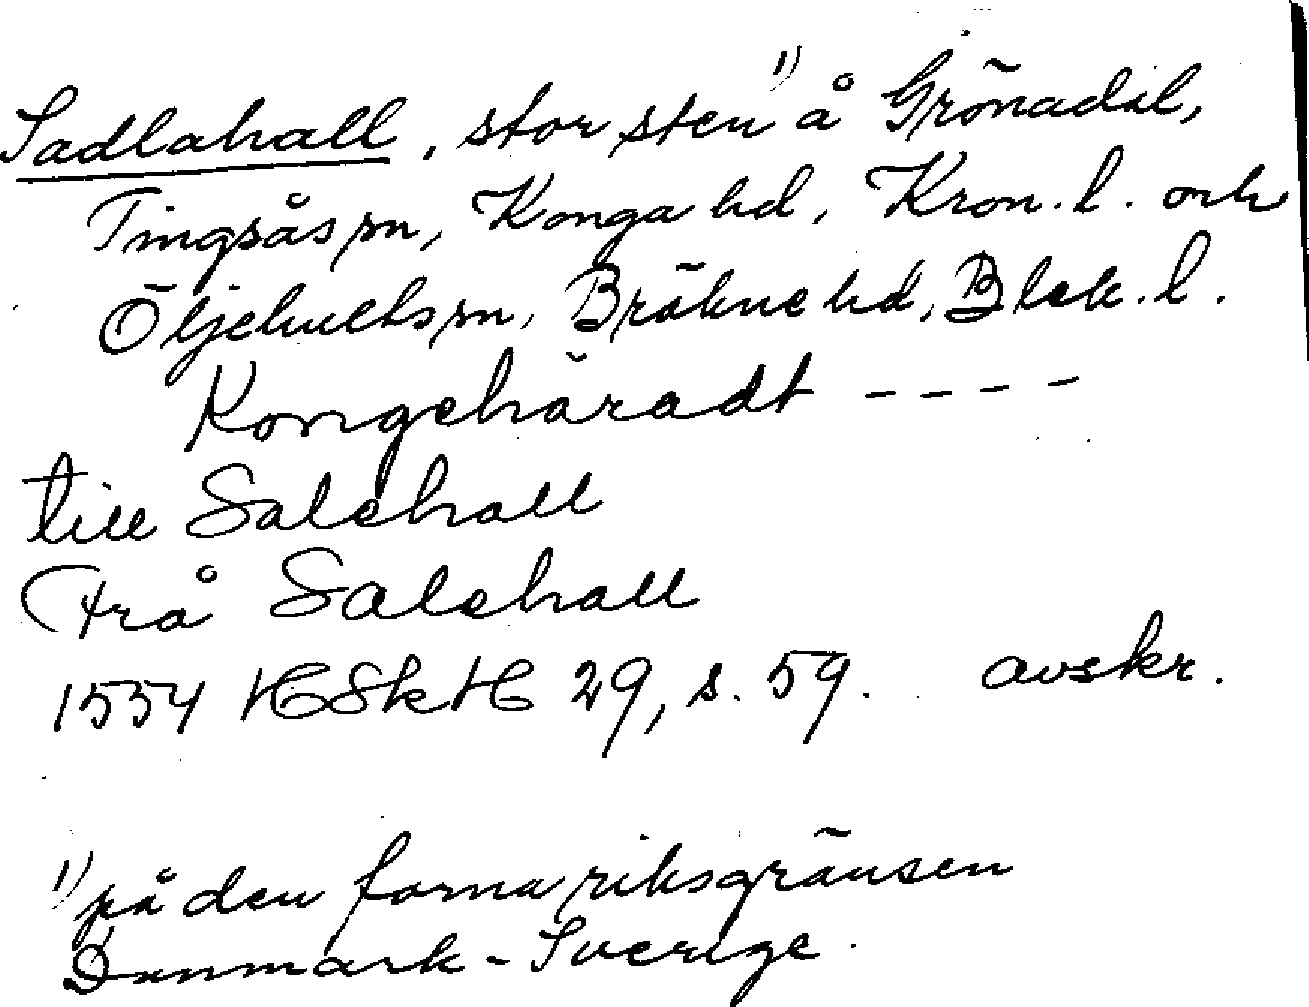 Sadlahall, stor sten 1) å Grönadal,
Tingsås sn, Konga hd, Kron. l. och
Öljehults sn, Bräkne hd, Blek. l.
Kongehäradt - - - -
till Salehall
Frå Salehall
1554 HSkH 29, s. 59. avskr.
1) på den forna riksgränsen
Danmark - Sverige.